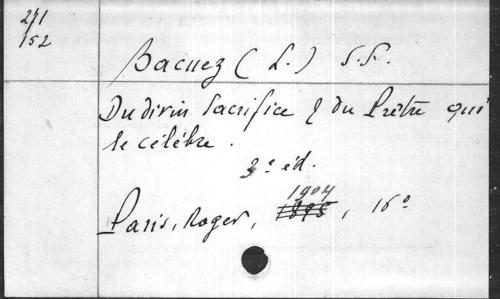 271
152
Bacuez (L.) S.S.
Du divin Sacrifice & du Prêtre qui
le célèbre.
3e éd.
1904
Paris, Roger, 1895, 16o